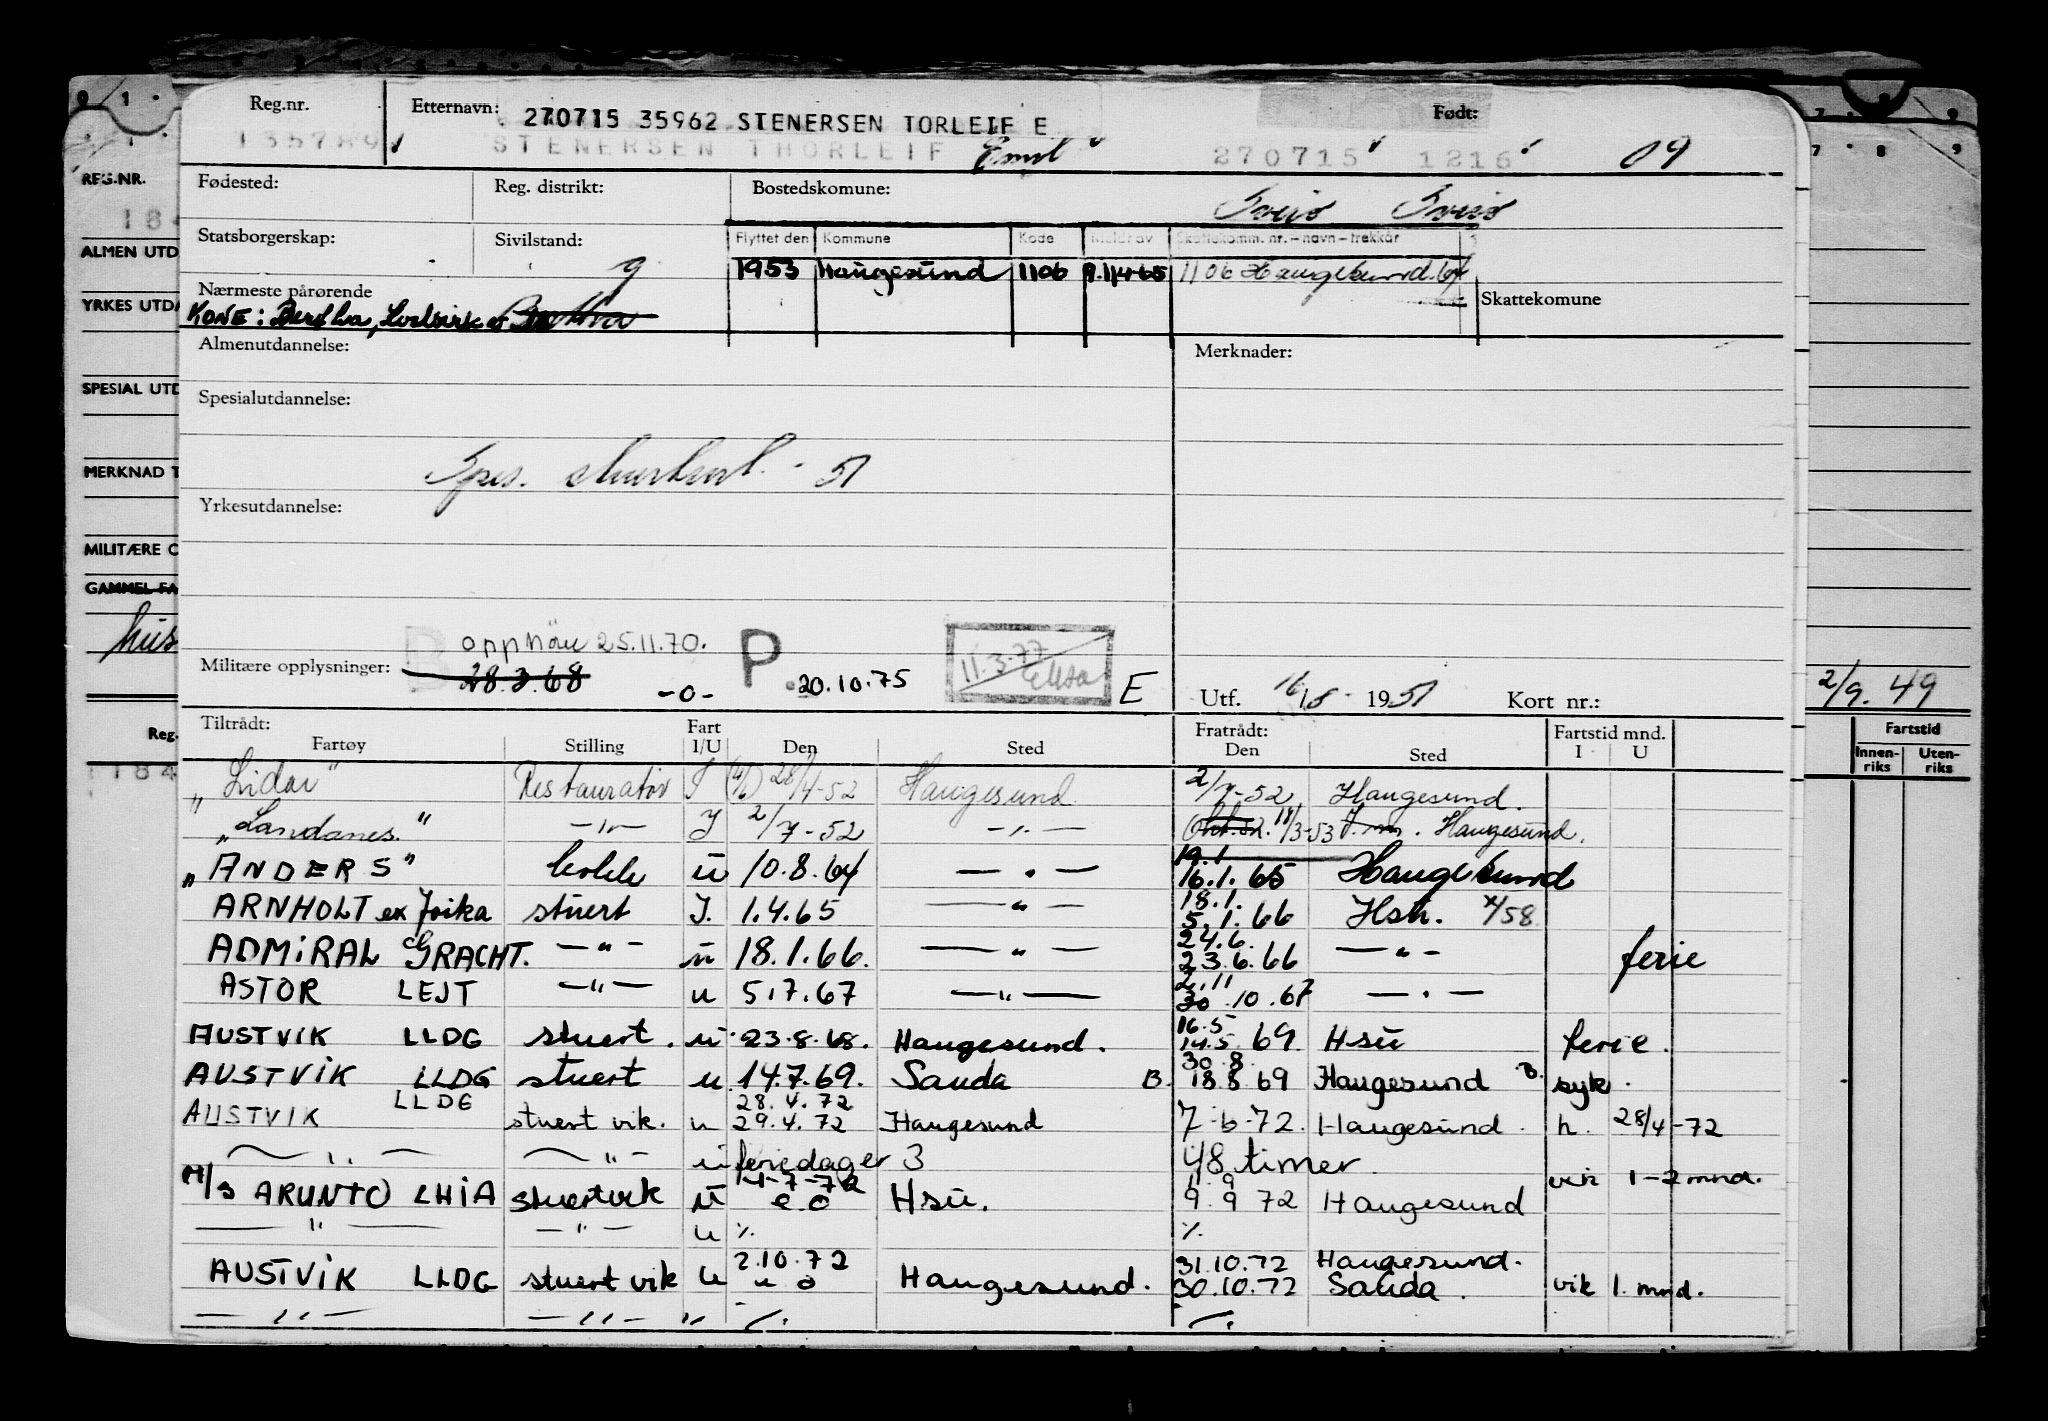 Reg.nr. Etternavn: 270715 35962 STENERSEN TORLEIF E Født:
135789 STENERSEN THORLEIF Emil 270715 1216 09
Fødested: Reg. distrikt: Bostedskomune:
Sveio Sveio
Statsborgerskap: Sivilstand: g
Flyttet den Kommune Kode Meldt av Skattekomm. nr. – navn – trekkår
1953 Haugesund 1106 9.1/4-65 1106 Haugesund. 64
Nærmeste pårørende Skattekomune
KONE: Bertha,
Almenutdannelse: Merknader:
Spesialutdannelse:
Spes. stuertkurs. - 51
Yrkesutdannelse:
B opphøu 25.11.70. P 11.3.77
Militære opplysninger: 28.3.68 -0- 20.10.75 E Utf. 16/8 - 1951 Kort nr.:
Tiltrådt: Fratrådt: Fartstid mnd.
Fartøy Stilling Fart I/U Den Sted Den Sted I U
"Lidar" Restauratør I 28/4-52 Haugesund 2/7-52 Haugesund.
"Landanes." —"— I 2/7-52 —"— 18/3-53 Haugesund.
19.1
"ANDERS" kokk u 10.8.64 — " — 16.1.65 Haugesund
18.1.
ARNHOLT ex Joika stuert I. 1.4.65 —"— 5.1.66 Hsh. 4/58
24.6.
ADMIRAL GRACHT. —"— u 18.1.66. —"— 23.6.66 —"— ferie
2.11
ASTOR LEJT —"— u 5.7.67 —"— 30.10.67 —"—
16.5
AUSTVIK LLDG stuert. u 23.8.68. Haugesund. 14.5.69 Hsu ferie.
30.8
AUSTVIK LLDG stuert u 14.7.69. Sauda B. 18.8 69 Haugesund B. syk.
LLDG 28.4.72
AUSTVIK stuert vik. u 29.4.72 Haugesund 7-6-72. Haugesund. h. 28/4-72
—"— —"— u feriedager 3 48 timer.
11.9 vik 1-2 mnd.
M/S ARUNTO LHIA stuertvik u e.o Hsu. 9.9 72 Haugesund
—"— —"— u ٪ ٪
2.10.72 31.10.72 Haugesund.
AUSTVIK LLDG stuert vik u u o Haugesund. 30.10.72 Sauda. vik 1. mnd.
—"— —"— " ٪ ٪
REG.NR.
184
ALMEN UTD
YRKES UTDA
SPESIAL UTD
MERKNAD T
MILITÆRE O
GAMMEL FA
hus
Reg.
1184
2/9. 49
Fartstid
Innen-riks Uten-riks